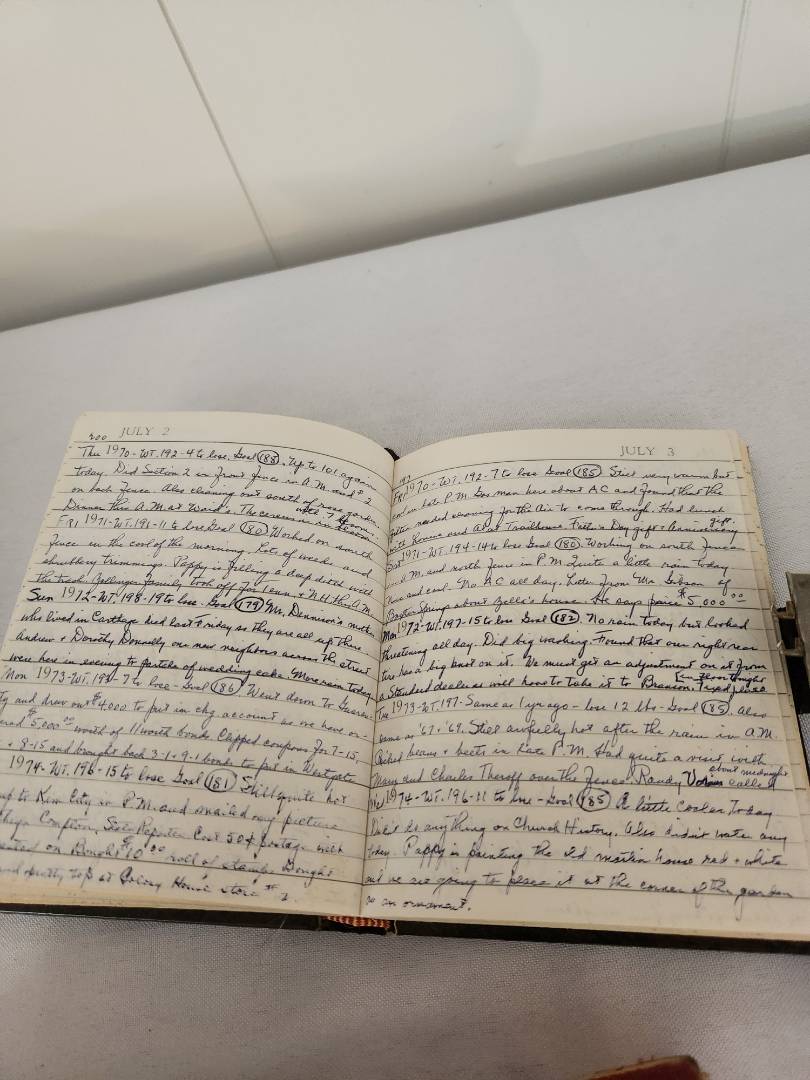 200 JULY 2
Thu 1970-WT. 192-4 to lose. Goal (188). Up to 101 again
today. Did Section 2 in front fence in A.M. and # 2
on back fence. Also cleaning out south of rose garden.
Dinner this A.M at Ward's. The ceremony in
Fri 1971-WT. 191-11 to lose Goal (180) Worked on south
fence in the cool of the morning. Lots of weeds and
shrubbery trimmings. Pappy is filling a deep ditch with
the trash. family took off for Tenn. + N.H. this A.M.
Sun 1972-WT. 198-19 to lose. Goal (179) Mr. Dennison's mother
who lived in Carthage died last Friday so they are all up there.
Andrew + Dorothy Donnelly our new neighbors across the street
were here in evening to partake of wedding cake. More rain today.
Mon 1973-WT. 193-7 to lose-Goal (186) Went down to
and drew out $4000 to put in chg account as we have
$5,000.00 worth of 11 worth bonds. Clipped coupons for 7-15,
+ 8-15 and brought back 3-1 + 9-1 bonds to put in Westgate
1974-WT. 196-15 to lose Goal (181) Still quite hot
up to Kim City in P.M. and mailed my picture
Compton, State Reporter Cost 50¢ postage with
on Bought $10.00 roll of stamps. Bought
pretty top at Colony House store # 2.
JULY 3
Fri 1970-WT. 192-7 to lose Goal (185) Still very warm but
hot P.M. Gas man here about AC and found that the
filter needed cleaning for the Air to come through. Had lunch
with and Al at Trailhouse. Father's Day gift + Anniversary gift.
Sat 1971-WT. 194-14 to lose Goal (180). Working on south fence
A.M. and north fence in P.M. Quite a little rain today
and cool. No AC all day. Letter from Mr. Gibson of
Baxter Springs about Zella's house. He says price $5,000.00
Mon 1972-WT. 197-15 to lose Goal (182). No rain today but looked
threatening all day. Did big washing. Found that our right rear
tire has a big knot on it. We must get an adjustment on it from
a Standard dealer so will have to take it to Branson. Tread loose
Tue 1973-WT. 197-Same as 1 yr ago-lose 12 lbs-Goal (185). Also
same as '67 + '69. Still awfully hot after the rain in A.M.
Picked beans + beets in late P.M. Had quite a visit with
Mary and Charles Theroff over the fence. Randy called about midnight
Wed 1974-WT. 196-11 to lose-Goal (185) A little cooler today
Didn't do anything on Church History. Also didn't water any
today. Pappy is painting the old martin house red + white
and we are going to place it at the corner of the garden
as an ornament.